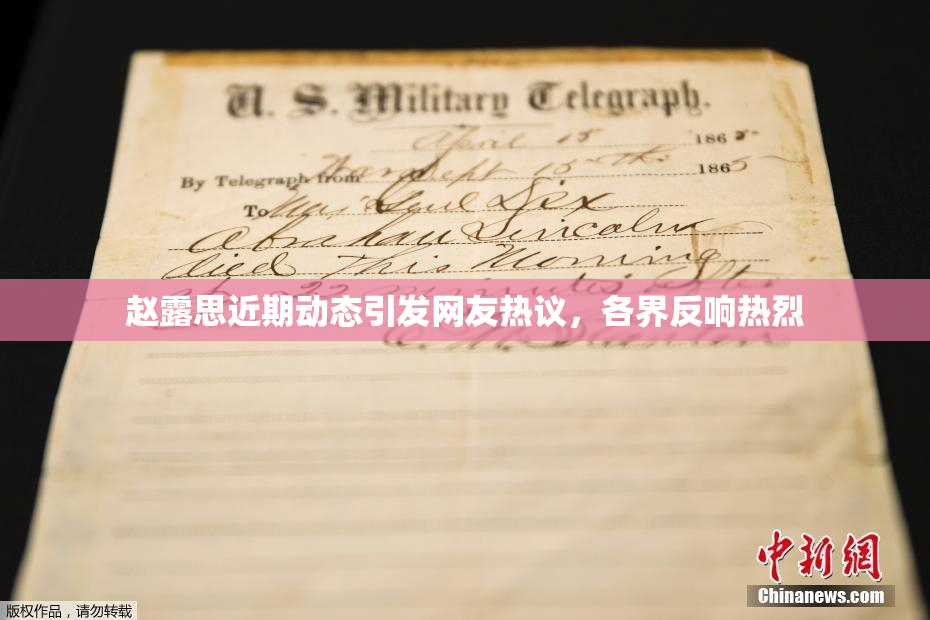 U. S. Military Telegraph.
April 15 1865
By Telegraph from War Dept 15th 1865
To Maj Genl Dix
Abraham Lincoln
died This Morning
at 22 minutes after
赵露思近期动态引发网友热议，各界反响热烈
中新网
Chinanews.com
版权作品，请勿转载